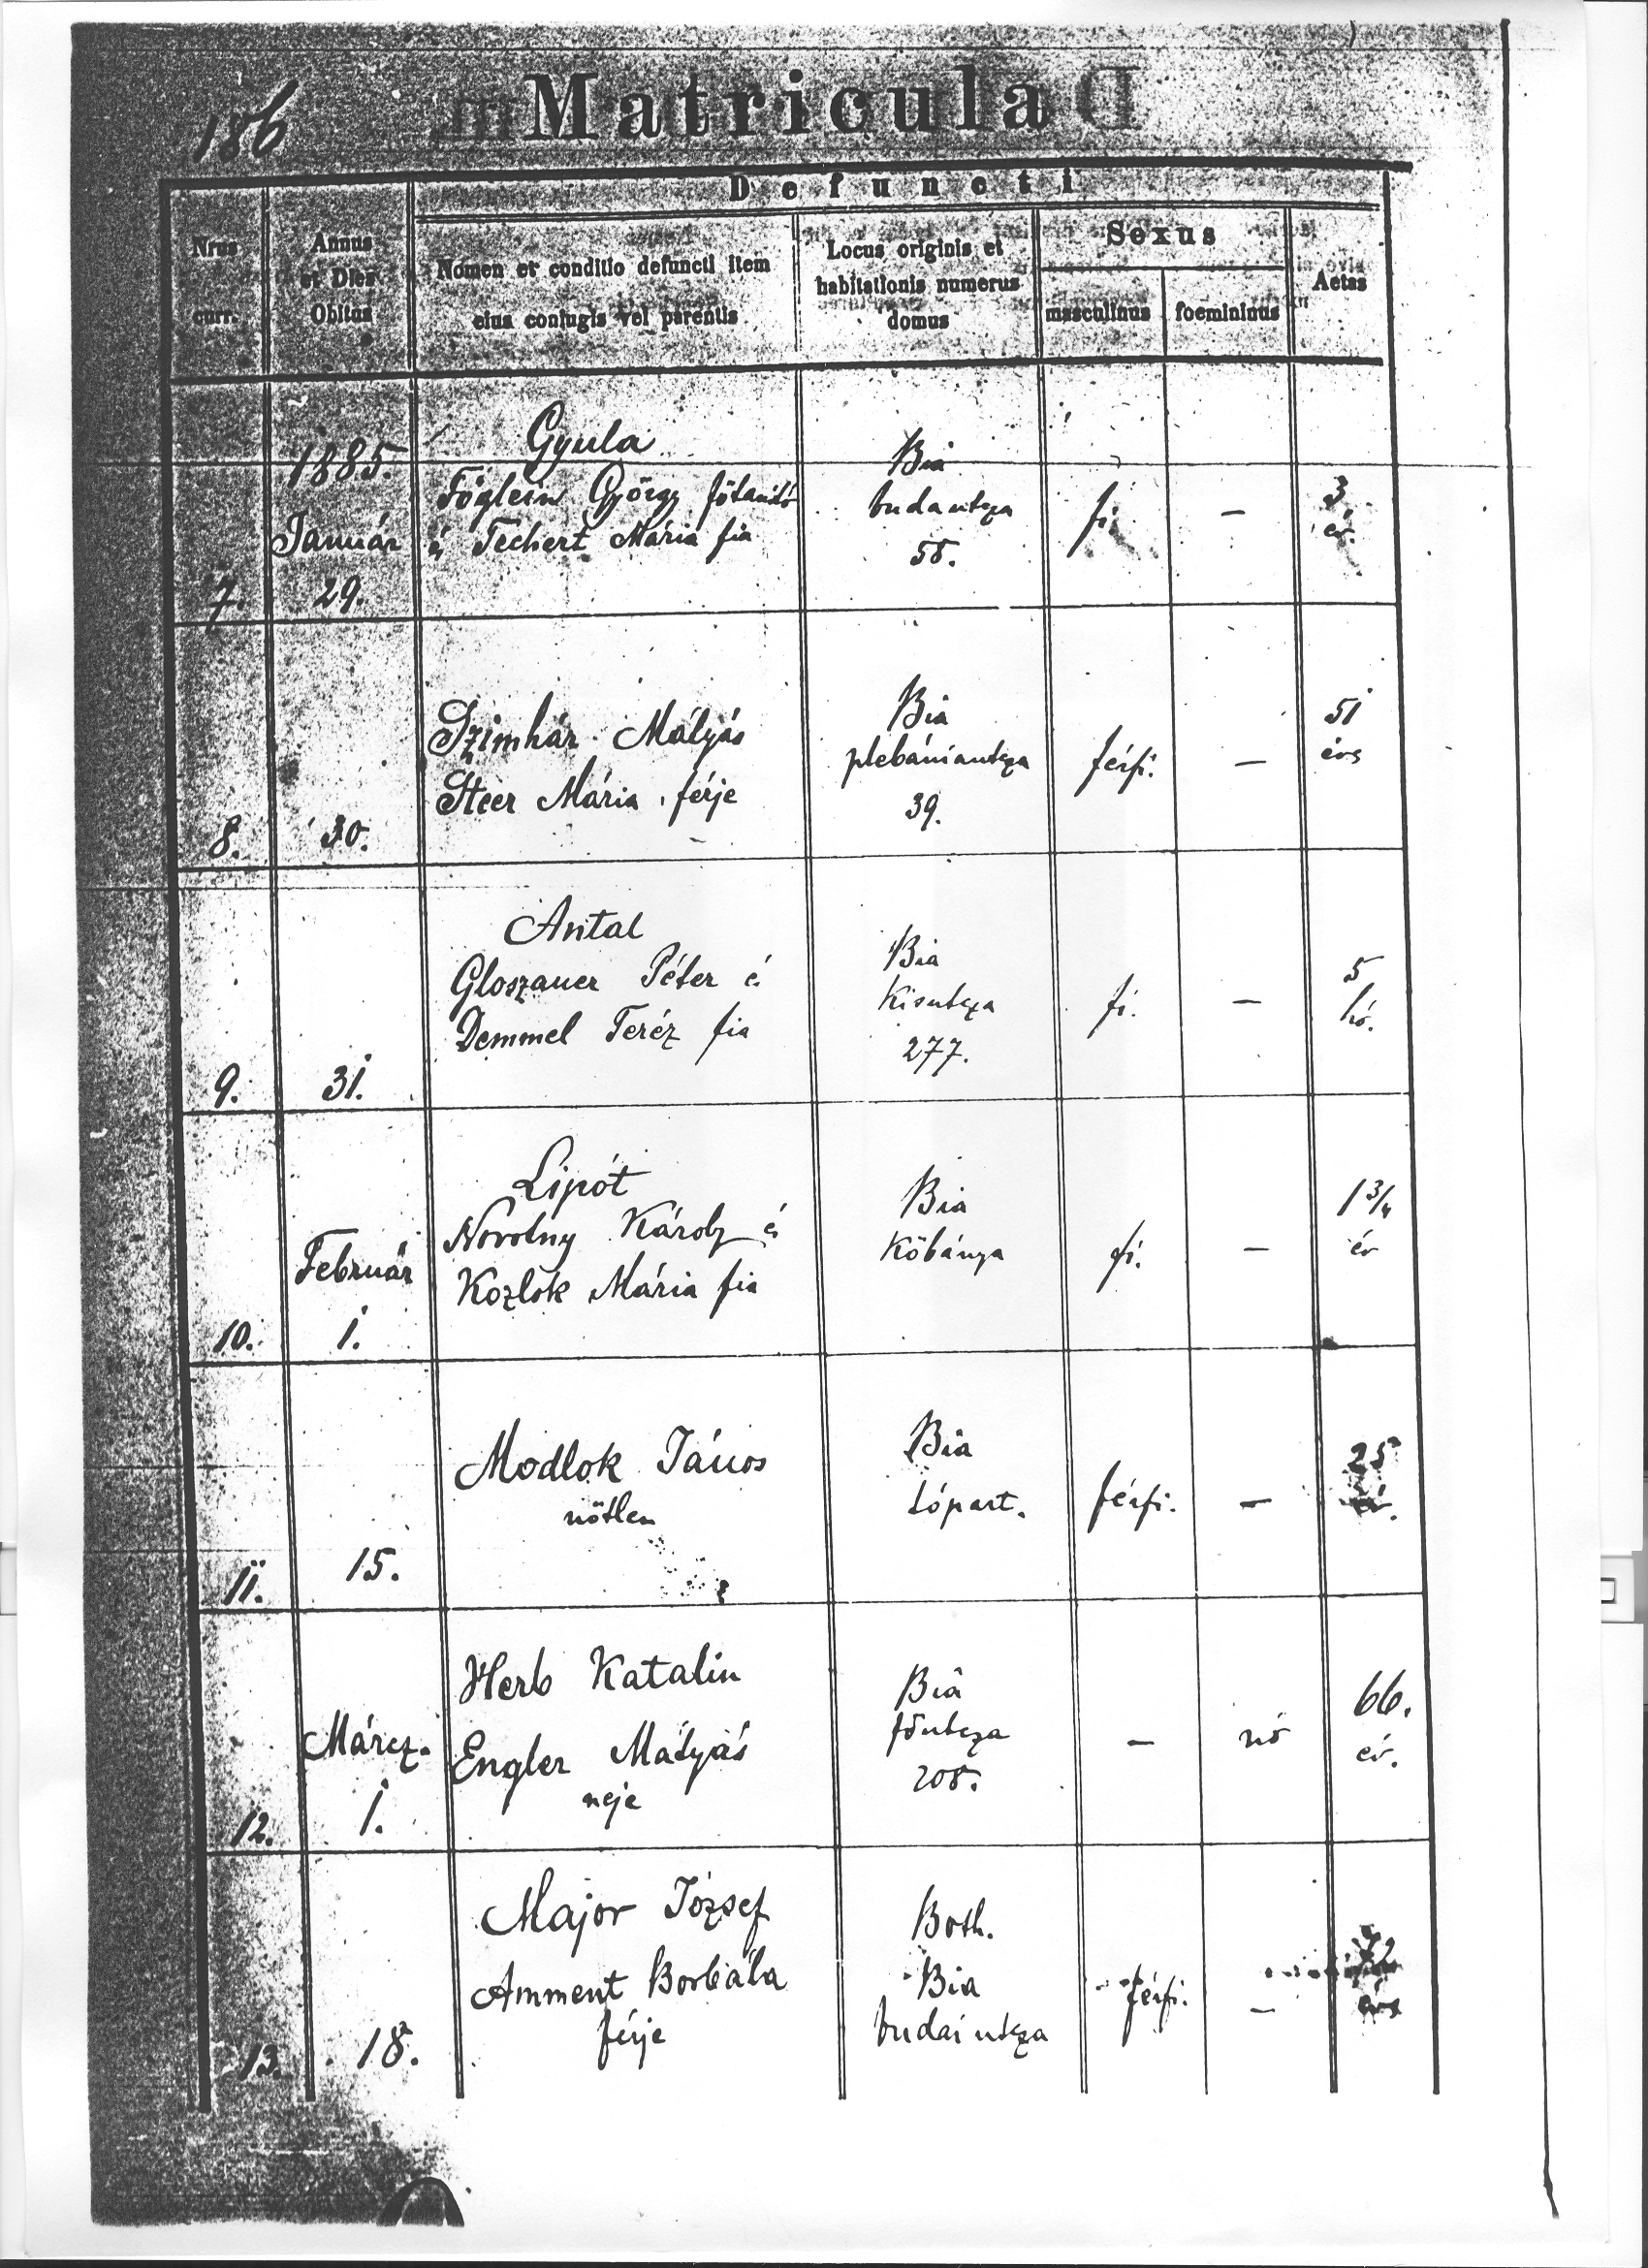 186
Matricula
Defuncti
Nrus
curr.
Annus
et Dies
Obitus
Nomen et conditio defuncti item
eius coniugis vel parentis
Locus originis et
habitationis numerus
domus
Sexus
masculinus
foemininus
Aetas
7.
1885.
Január
29.
Gyula
Föglein György főtanító
é Techert Mária fia
Bia
budautcza
58.
fi.
—
3
év.
8.
30.
Szimhár Mátyás
Steer Mária férje
Bia
plebániautcza
39.
férfi.
—
51
éves
9.
31.
Antal
Gloszauer Péter é
Demmel Teréz fia
Bia
Kisutcza
277.
fi.
—
5
hó.
10.
Február
1.
Lipót
Novotny Károly é
Kozlok Mária fia
Bia
Kőbánya
fi.
—
1 3/4
év
11.
15.
Modlok János
nőtlen
Bia
tópart.
férfi.
—
25
év.
12.
Márcz.
1.
Herb Katalin
Engler Mátyás
neje
Bia
főutcza
208.
—
nő
66.
év.
13.
18.
Major József
Amment Borbála
férje
Both.
Bia
budai utcza
férfi.
—
éves